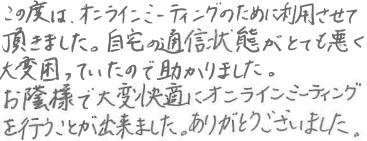 この度は、オンラインミーティングのために利用させて
頂きました。自宅の通信状態がとても悪く
大変困っていたので助かりました。
お陰様で大変快適にオンラインミーティング
を行うことが出来ました。ありがとうございました。